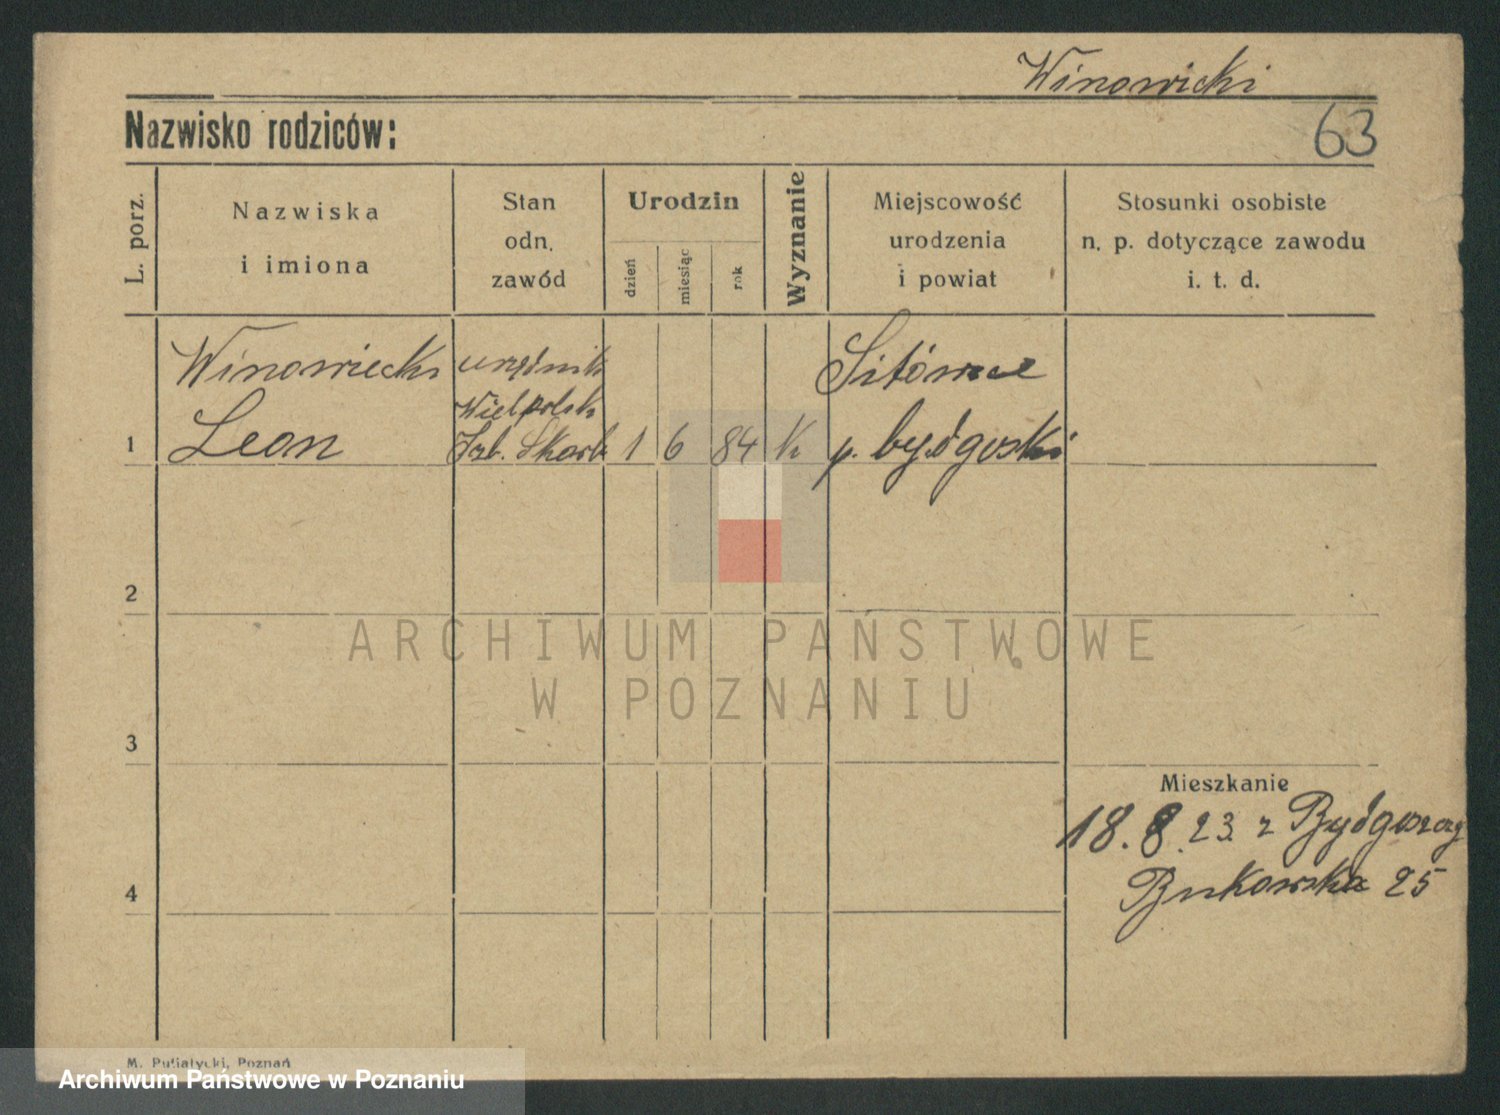 Winowicki
Nazwisko rodziców:
63
L. porz.
Nazwiska
i imiona
Stan
odn.
zawód
Urodzin
dzień
miesiąc
rok
Wyznanie
Miejscowość
urodzenia
i powiat
Stosunki osobiste
n. p. dotyczące zawodu
i. t. d.
1
Winowiecki
Leon
urzędnik
Wielpolsk
Izb. Skarb
1 6 84 k
Sitówce
p. bydgoski
2
ARCHIWUM PAŃSTWOWE
W POZNANIU
3
Mieszkanie
18.8.23 z Bydgoszczy
Bukowska 25
4
M. Putiatycki, Poznań
Archiwum Państwowe w Poznaniu